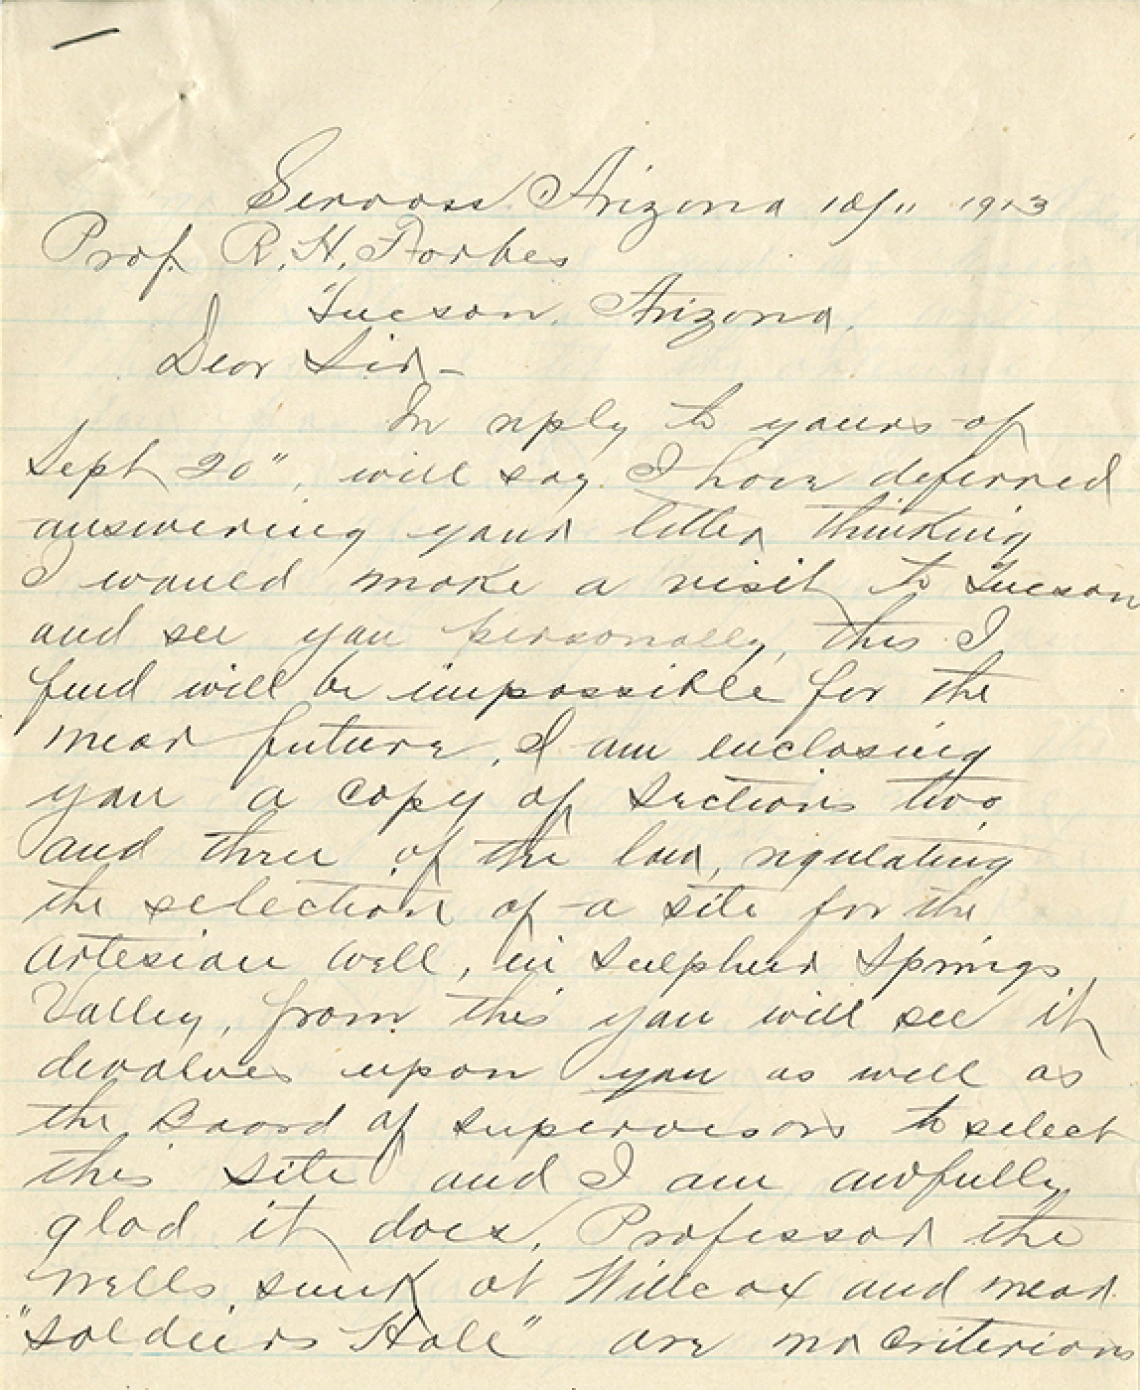 Servoss Arizona 10/11 1913
Prof. R. H. Forbes
Tucson, Arizona.
Dear Sir -
In reply to yours of
Sept 20", will say. I have deferred
answering your letter thinking
I would make a visit to Tucson
and see you personally, this I
find will be impossible for the
near future, I am enclosing
you a copy of Sections two
and three of the law, regulating
the selection of a site for the
Artesian Well, in Sulphur Springs
Valley, from this you will see it
devolves upon you as well as
the Board of Supervisors to select
this site and I am awfully
glad it does, Professor the
wells sunk at Willcox and near
"Soldiers Hole" are no criterions